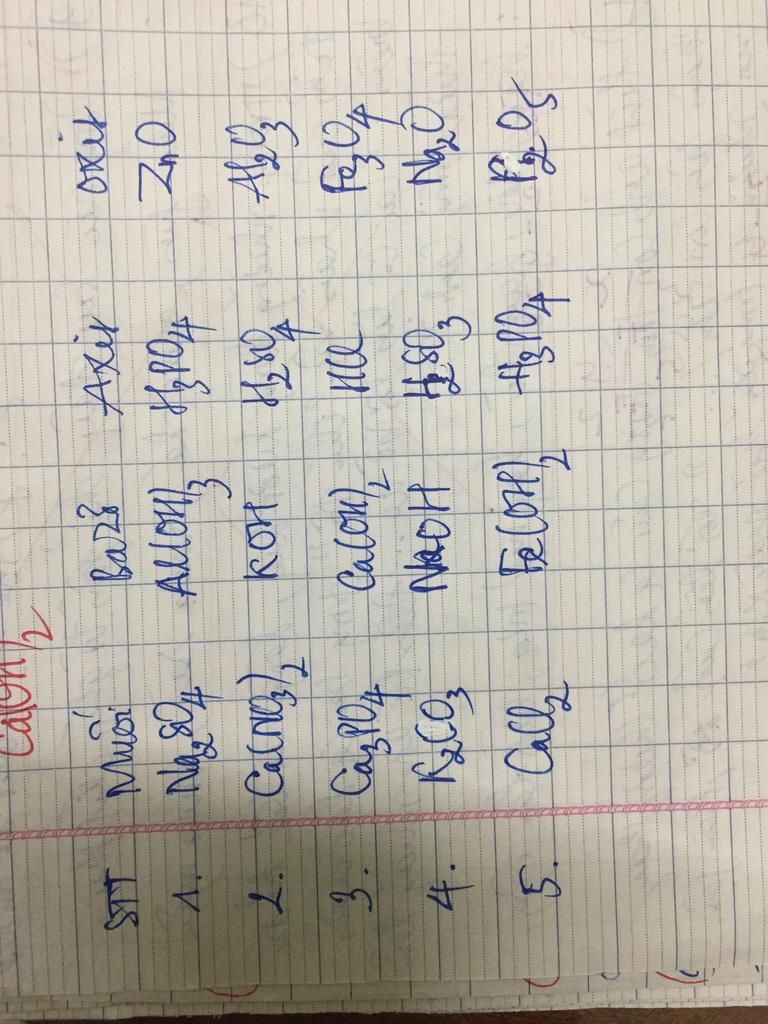 Ca(OH)2
STT Muối Bazơ Axit oxit
1. Na2SO4 Al(OH)3 H3PO4 ZnO
2. Ca(NO3)2 KOH H2SO4 Al2O3
3. Ca3PO4 Ca(OH)2 HCl Fe3O4
4. K2CO3 NaOH H2SO3 Na2O
5. CaCl2 Fe(OH)2 H3PO4 P2O5